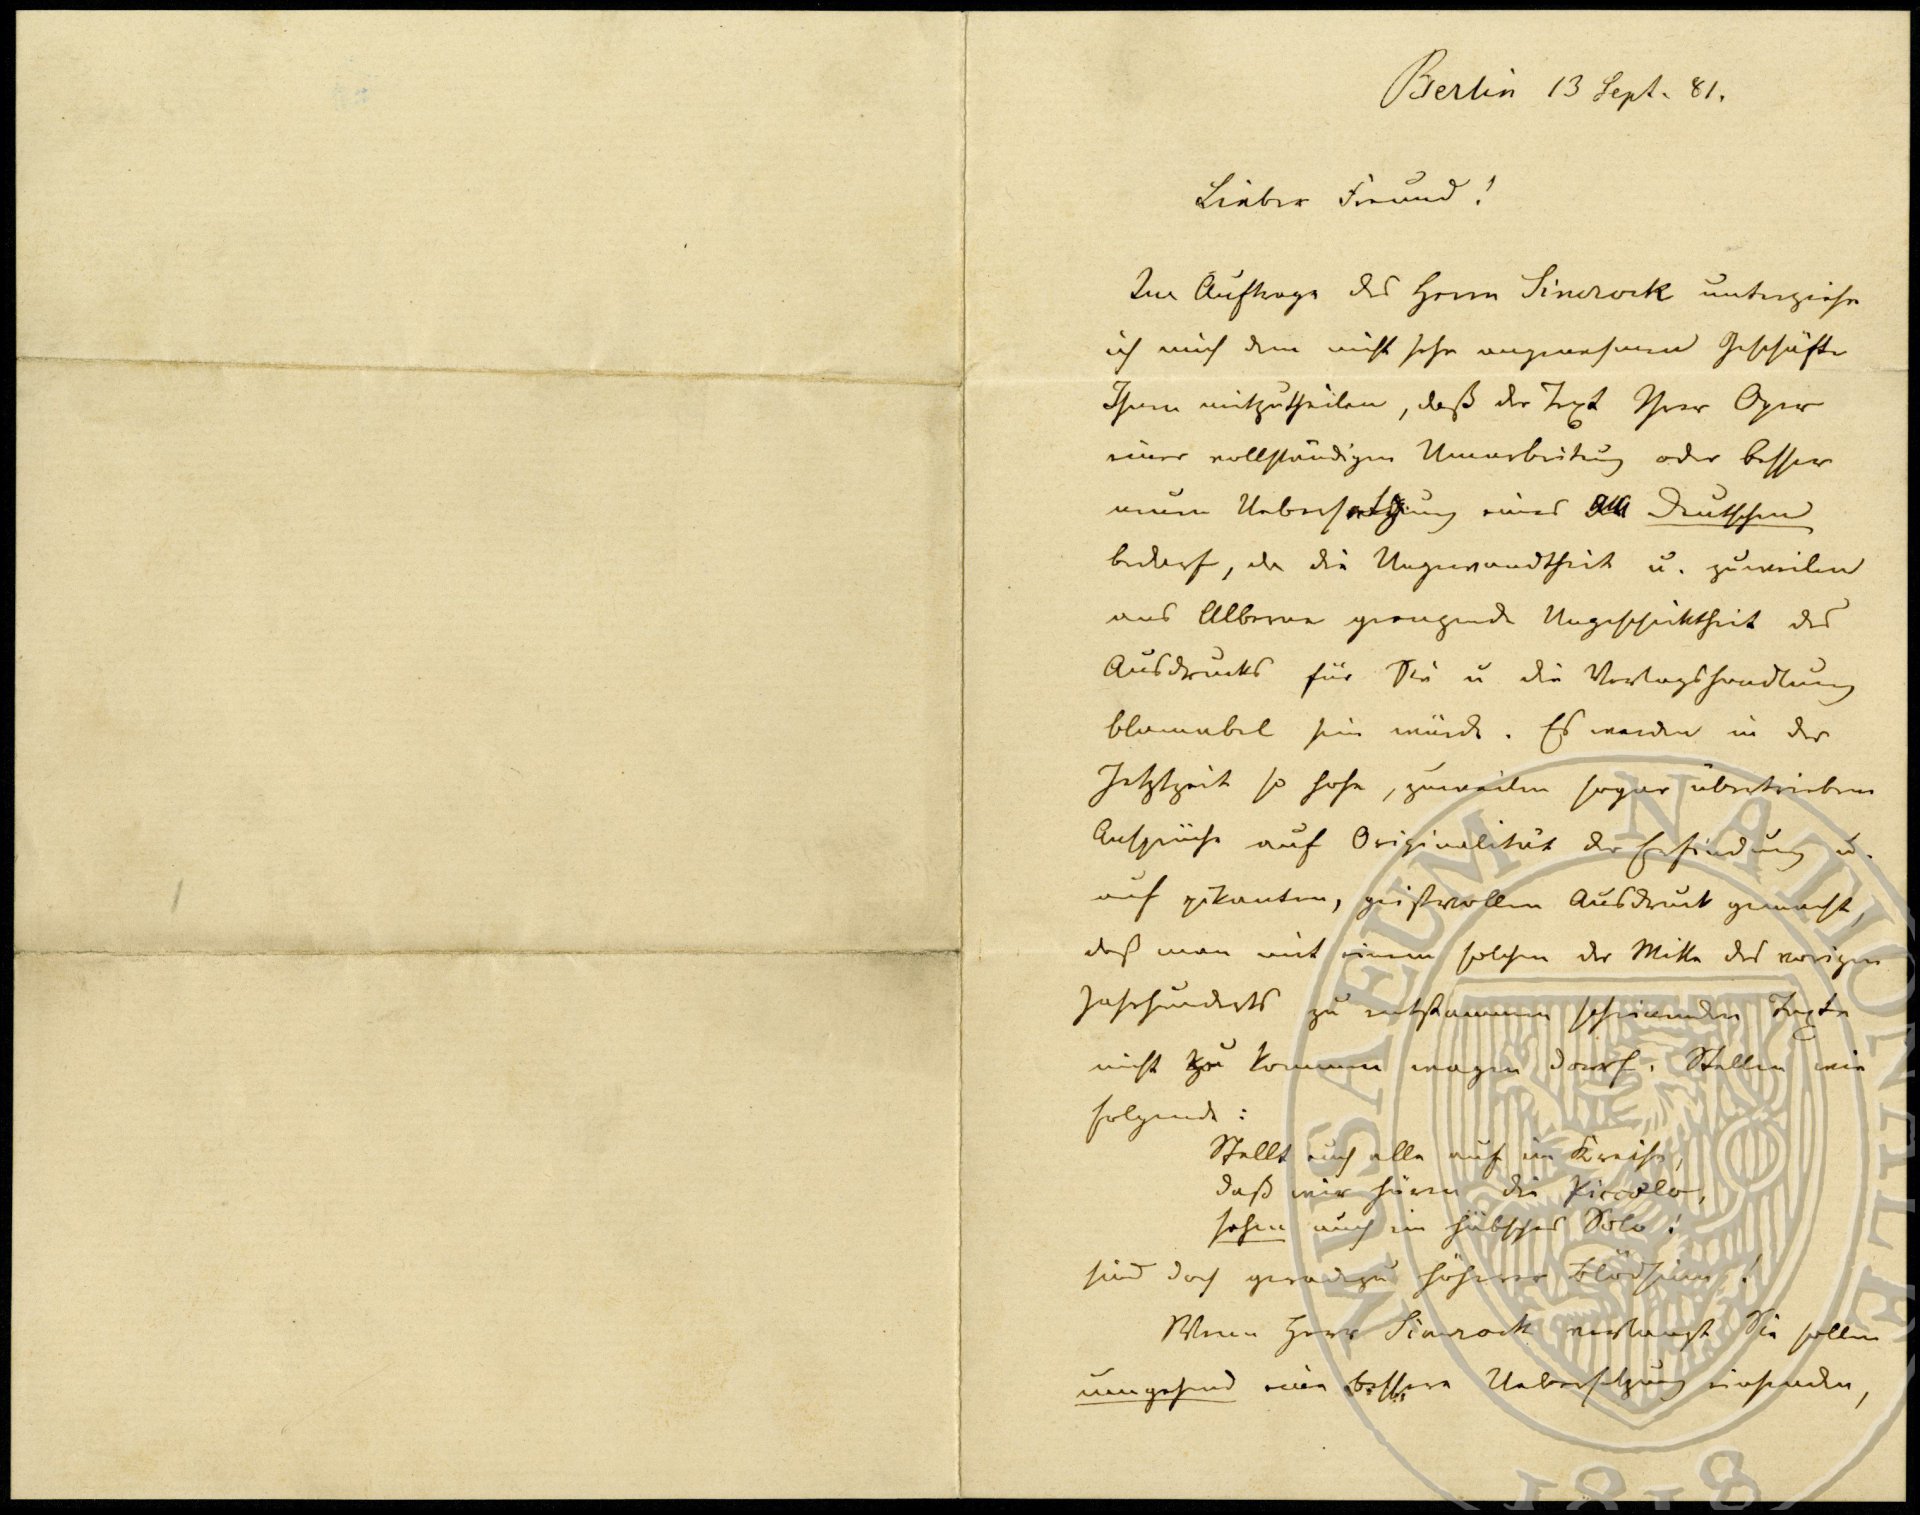 Berlin 13 Sept. 81.
Lieber Freund!
Im Auftrage des Herrn Simrock unterziehe
ich mich dem nicht sehr angenehmen Geschäfte
Ihnen mitzutheilen, daß der Text Ihrer Oper
einer vollständigen Umarbeitung oder besser
neuen Uebersetzung eines Deutschen
bedarf, da die Ungewandtheit u. zuweilen
ans Alberne grenzende Ungeschicktheit des
Ausdrucks für Sie u die Verlagshandlung
blamabel sein würde. Es werden in der
Jetztzeit so hohe, zuweilen sogar übertriebene
Ansprüche auf Originalität der Erfindung u.
auf pikanten, geistvollen Ausdruck gemacht,
daß man mit einem solchen der Mitte des vorigen
Jahrhunderts zu entstammen scheinenden Texte
nicht zu kommen wagen darf. Stellen wie
folgende:
Stellt euch alle auf im Kreise,
daß wir hören die Piccolo,
sehen auch ein hübsches Solo!
sind doch geradezu höherer Blödsinn!
Wenn Herr Simrock verlangt Sie sollen
umgehend eine bessere Uebersetzung einsenden,
MUSAEUM NATIONALE
1818